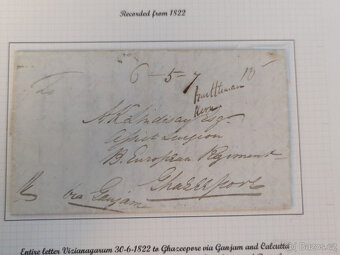 Recorded from 1822
6 - 5 - 7
A K Lindesay Esqr
Assist Surgeon
B. European Regiment
Ghazeepore
via Ganjam
Entire letter Vizianagarum 30-6-1822 to Ghazeepore via Ganjam and Calcutta